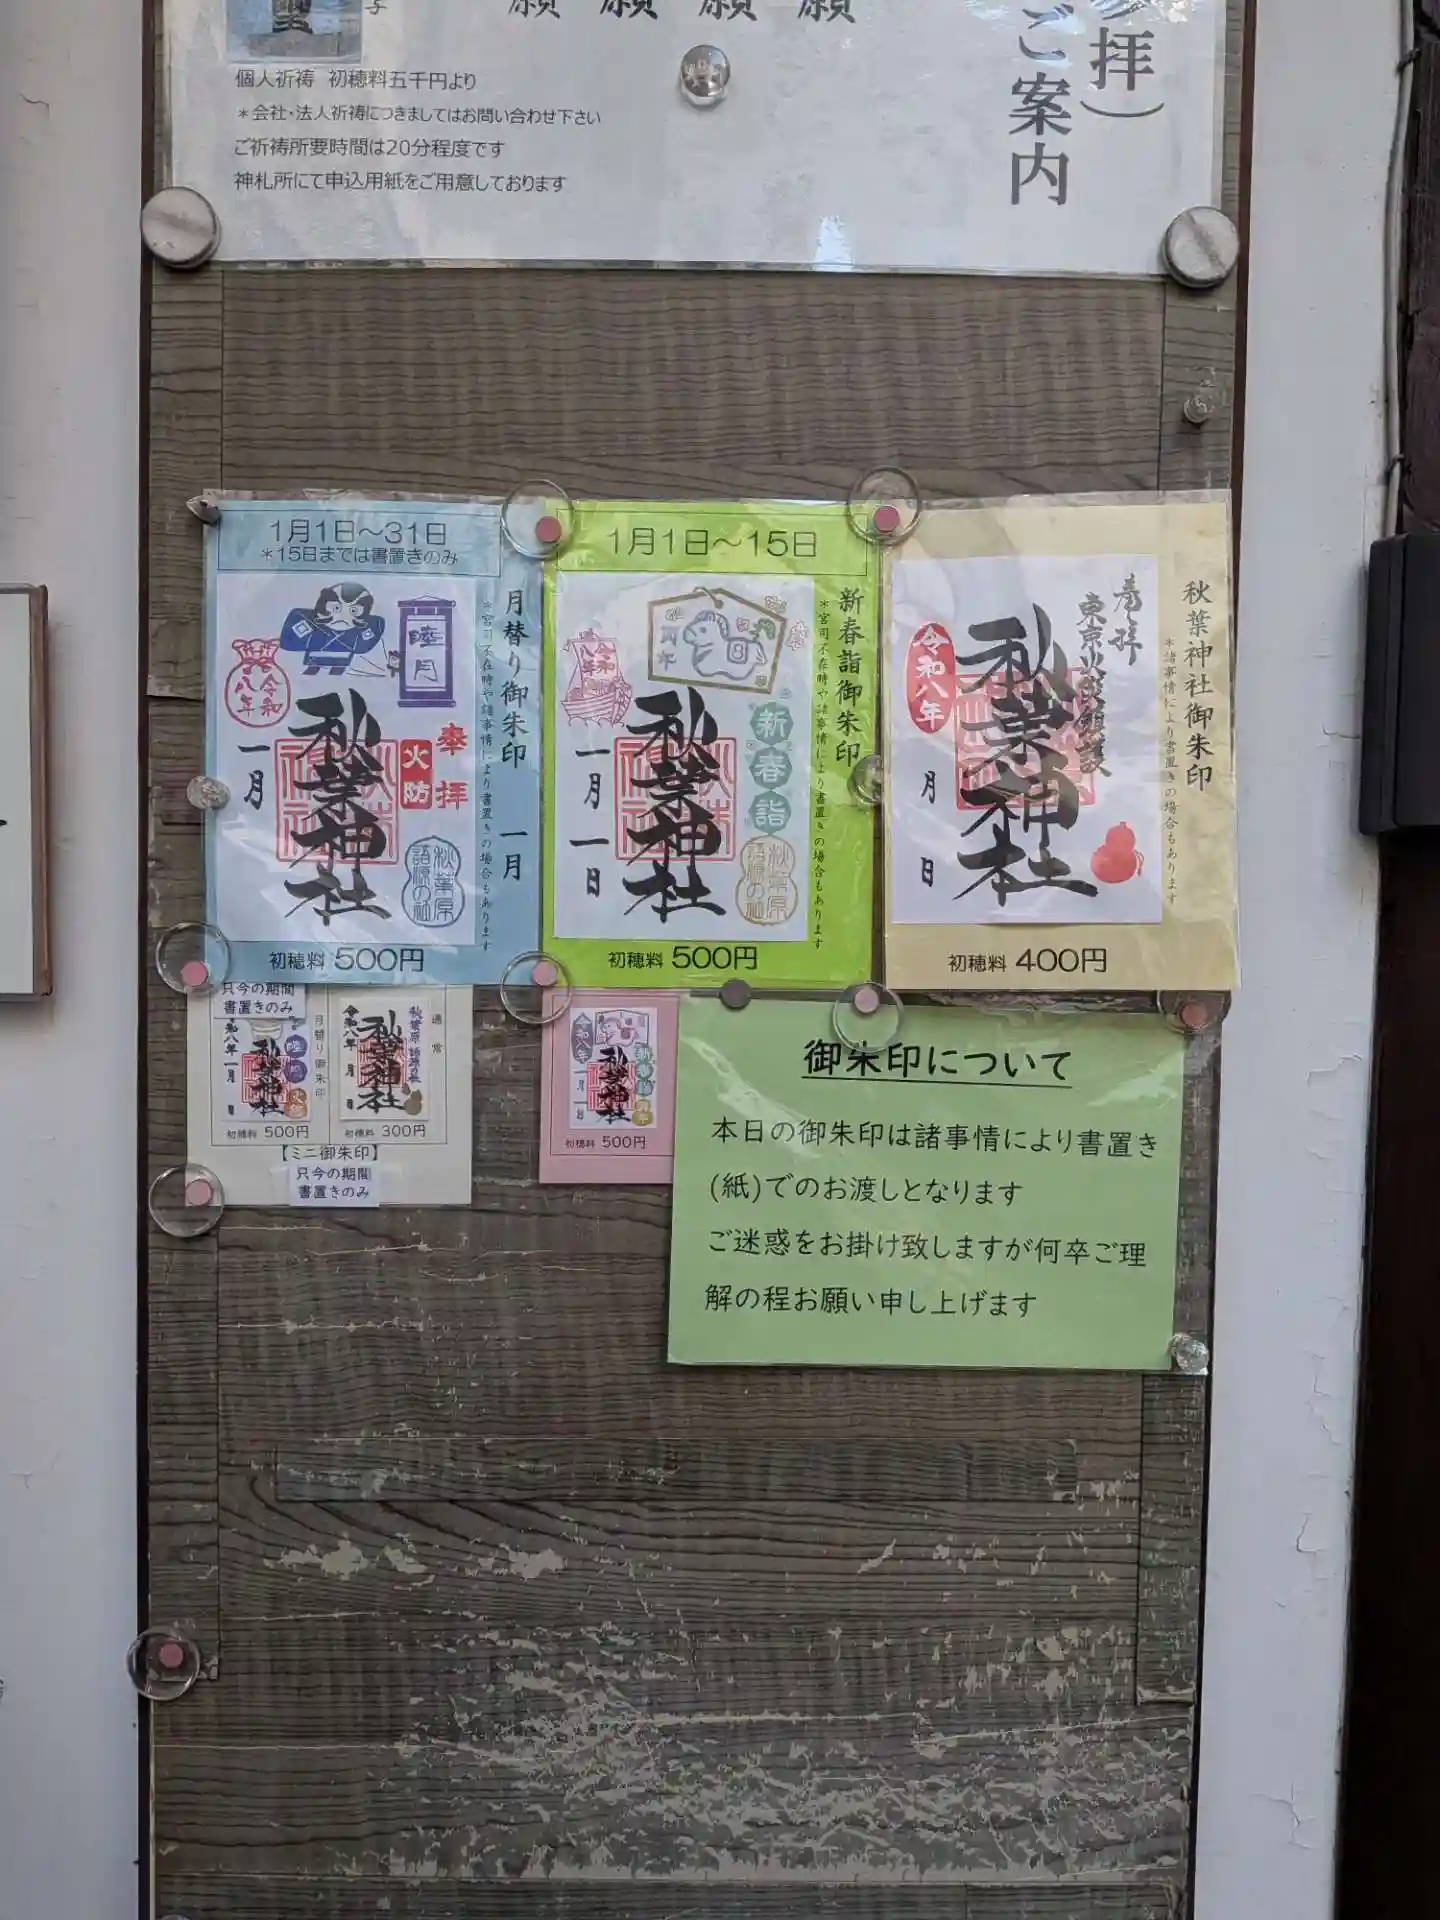 拝）
ご案内
願 願 願 願
個人祈祷 初穂料五千円より
＊会社・法人祈祷につきましてはお問い合わせ下さい
ご祈祷所要時間は20分程度です
神札所にて申込用紙をご用意しております
1月1日～31日
＊15日までは書置きのみ
月替り御朱印 一月
＊宮司不在時や諸事情により書置きの場合もあります
睦月
令和八年
一月
奉拝
火防
秋葉神社
秋葉原語源の社
初穂料 500円
1月1日～15日
新春詣御朱印
＊宮司不在時や諸事情により書置きの場合もあります
令和八年
新春詣
一月一日
秋葉神社
秋葉原語源の社
初穂料 500円
秋葉神社御朱印
＊諸事情により書置きの場合もあります
奉拝
東京火災鎮護
秋葉神社
令和八年
月 日
初穂料 400円
只今の期間
書置きのみ
月替り御朱印
令和八年 一月 日
秋葉神社
初穂料 500円
通常
秋葉原語源の社
令和八年 月 日
秋葉神社
初穂料 300円
【ミニ御朱印】
只今の期間
書置きのみ
令和八年
一月一日
新春詣
秋葉神社
初穂料 500円
御朱印について
本日の御朱印は諸事情により書置き
(紙)でのお渡しとなります
ご迷惑をお掛け致しますが何卒ご理
解の程お願い申し上げます